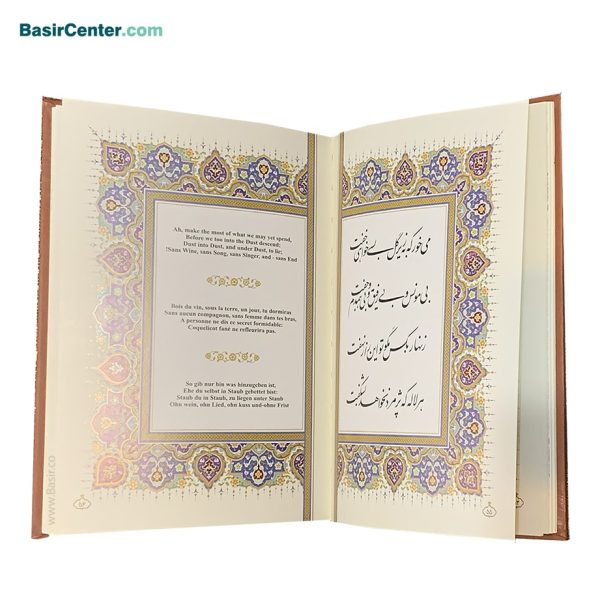 BasirCenter.com
Ah, make the most of what we may yet spend,
Before we too into the Dust descend;
Dust into Dust, and under Dust, to lie;
!Sans Wine, sans Song, sans Singer, and - sans End
Bois du vin, sous la terre, un jour, tu dormiras
Sans aucun compagnon, sans femme dans tes bras,
A personne ne dis ce secret formidable:
Coquelicot fané ne refleurira pas.
So gib nur bin was hinzugeben ist,
Ehe du selbst in Staub gebettet bist:
Staub du in Staub, zu liegen unter Staub
Ohn wein, ohn Lied, ohn kuss und-ohne Frist
می خور که به زیر گل بسی خواهی خفت
بی مونس و بی رفیق و بی همدم و جفت
زنهار به کس مگو تو این راز نهفت
هر لاله که پژمرد نخواهد بشکفت
www.Basir.co
۵۴
۵۵